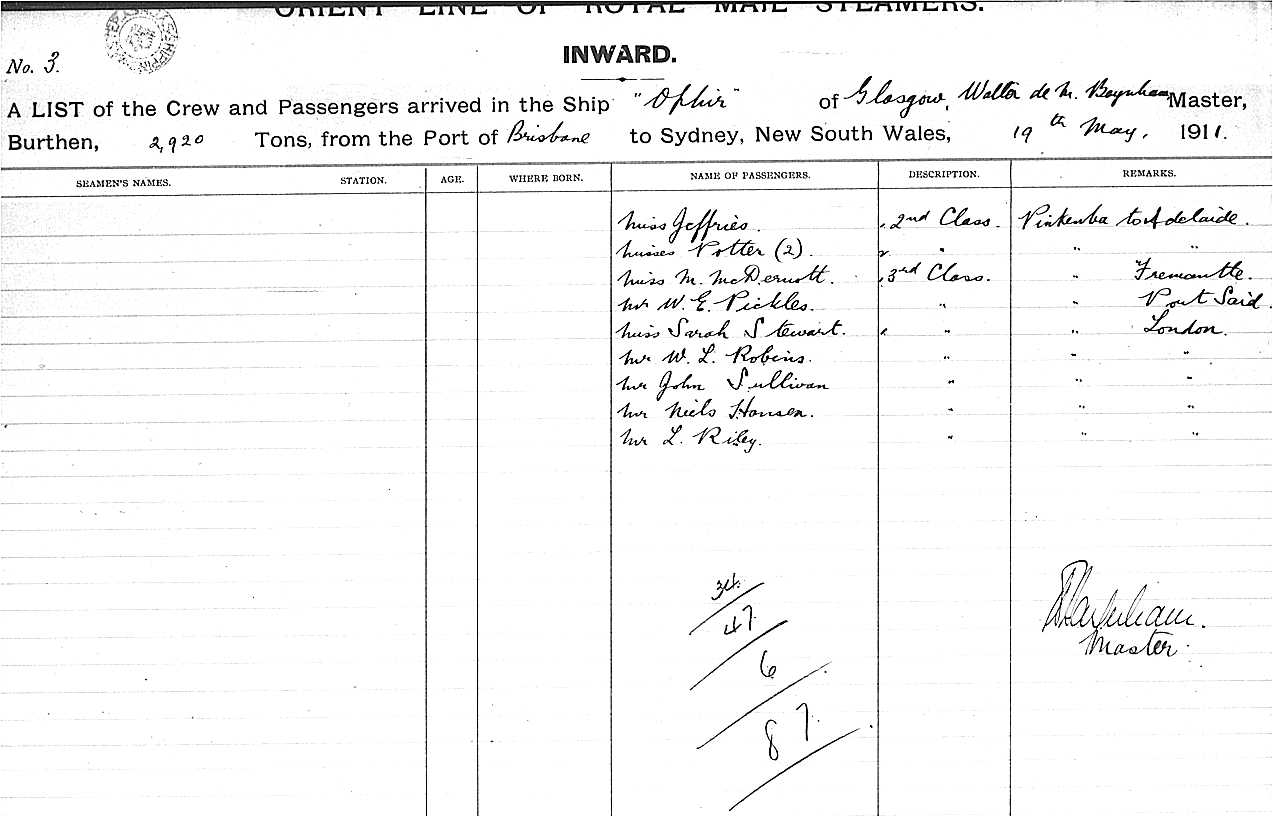 ORIENT LINE OF ROYAL MAIL STEAMERS.
INWARD.
No. 3.
A LIST of the Crew and Passengers arrived in the Ship "Ophir" of Glasgow, Walter de M. Baynham Master,
Burthen, 2,920 Tons, from the Port of Brisbane to Sydney, New South Wales, 19th May. 1911.
SEAMEN'S NAMES. STATION. AGE. WHERE BORN. NAME OF PASSENGERS. DESCRIPTION. REMARKS.
Miss Jeffries. 2nd Class. Pinkenba to Adelaide.
Misses Potter (2). " " "
Miss M. McDermott. 3rd Class. " Fremantle.
Mr W. E. Pickles. " " Port Said.
Miss Sarah Stewart. " " London.
Mr W. L. Robins. " " "
Mr John Sullivan " " "
Mr Niels Hansen. " " "
Mr L. Riley. " " "
34
47
6
87.
Master.